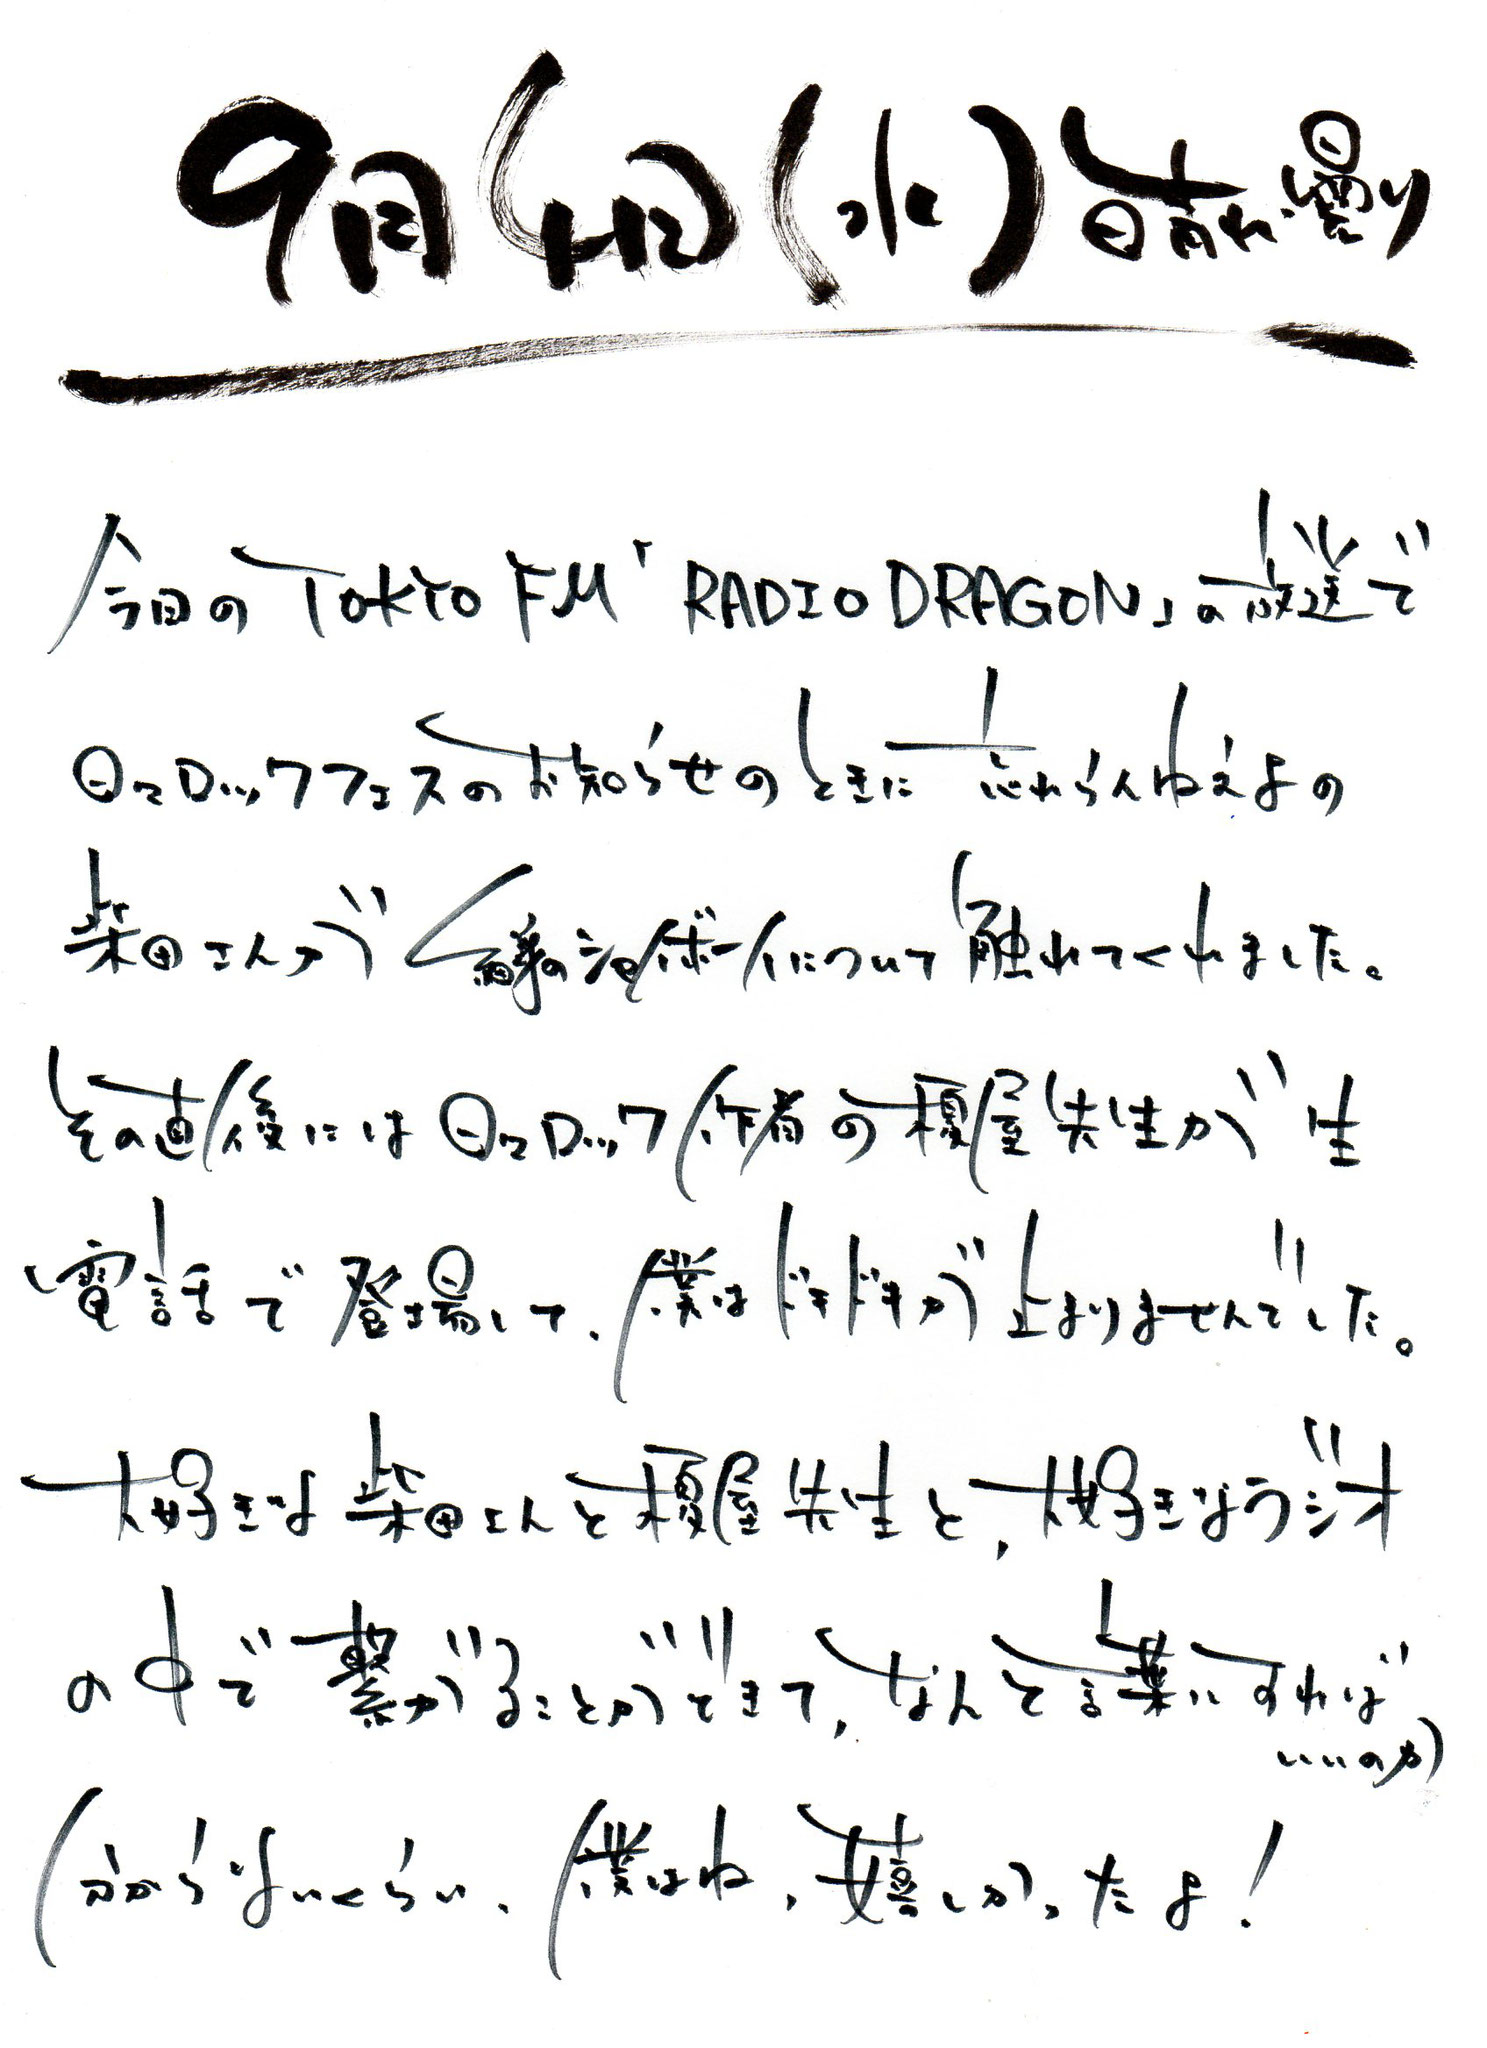 9月4日(水)晴れ・曇り
今日のTOKYO FM「RADIO DRAGON」の放送で
日々ロックフェスのお知らせのときに忘れらんねえよの
柴田さんが について触れてくれました。
その直後には日々ロック作者の榎屋先生が生
電話で登場して、僕はドキドキが止まりませんでした。
大好きな柴田さんと榎屋先生と、大好きなラジオ
の中で繋がることができて、なんと言葉にすれば
いいのか
分からないくらい、僕はね、嬉しかったよ!